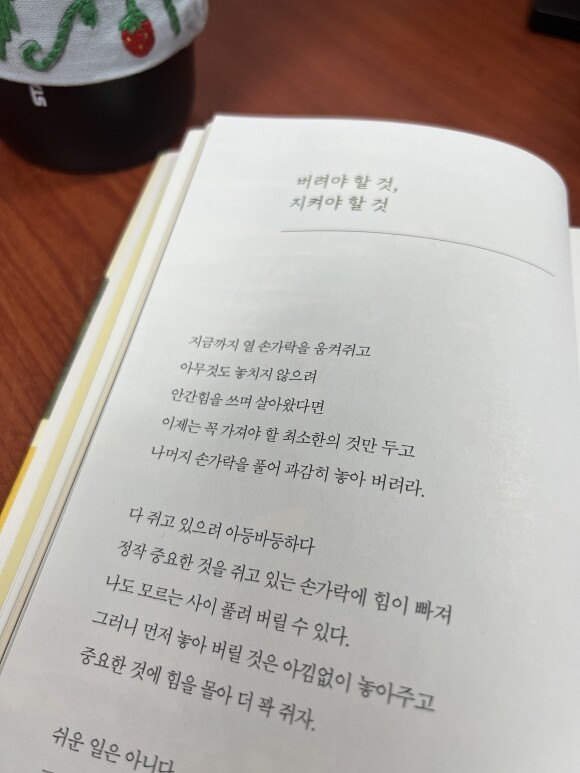 버려야 할 것,
지켜야 할 것
지금까지 열 손가락을 움켜쥐고
아무것도 놓치지 않으려
안간힘을 쓰며 살아왔다면
이제는 꼭 가져야 할 최소한의 것만 두고
나머지 손가락을 풀어 과감히 놓아 버려라.
다 쥐고 있으려 아등바등하다
정작 중요한 것을 쥐고 있는 손가락에 힘이 빠져
나도 모르는 사이 풀려 버릴 수 있다.
그러니 먼저 놓아 버릴 것은 아낌없이 놓아주고
중요한 것에 힘을 몰아 더 꽉 쥐자.
쉬운 일은 아니다